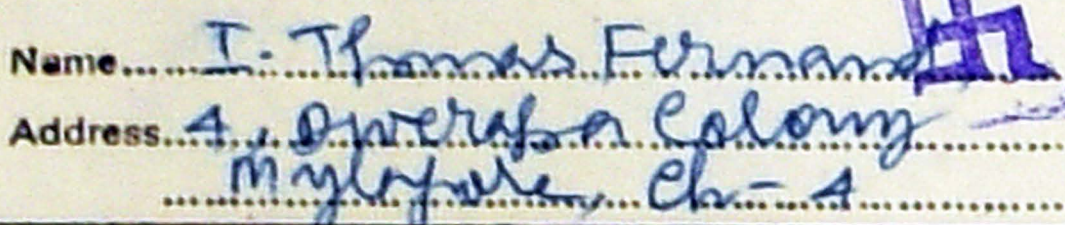 Name...... I. Thomas Fernand
Address...4, Dweraka Colony
Mylapore, Ch-4